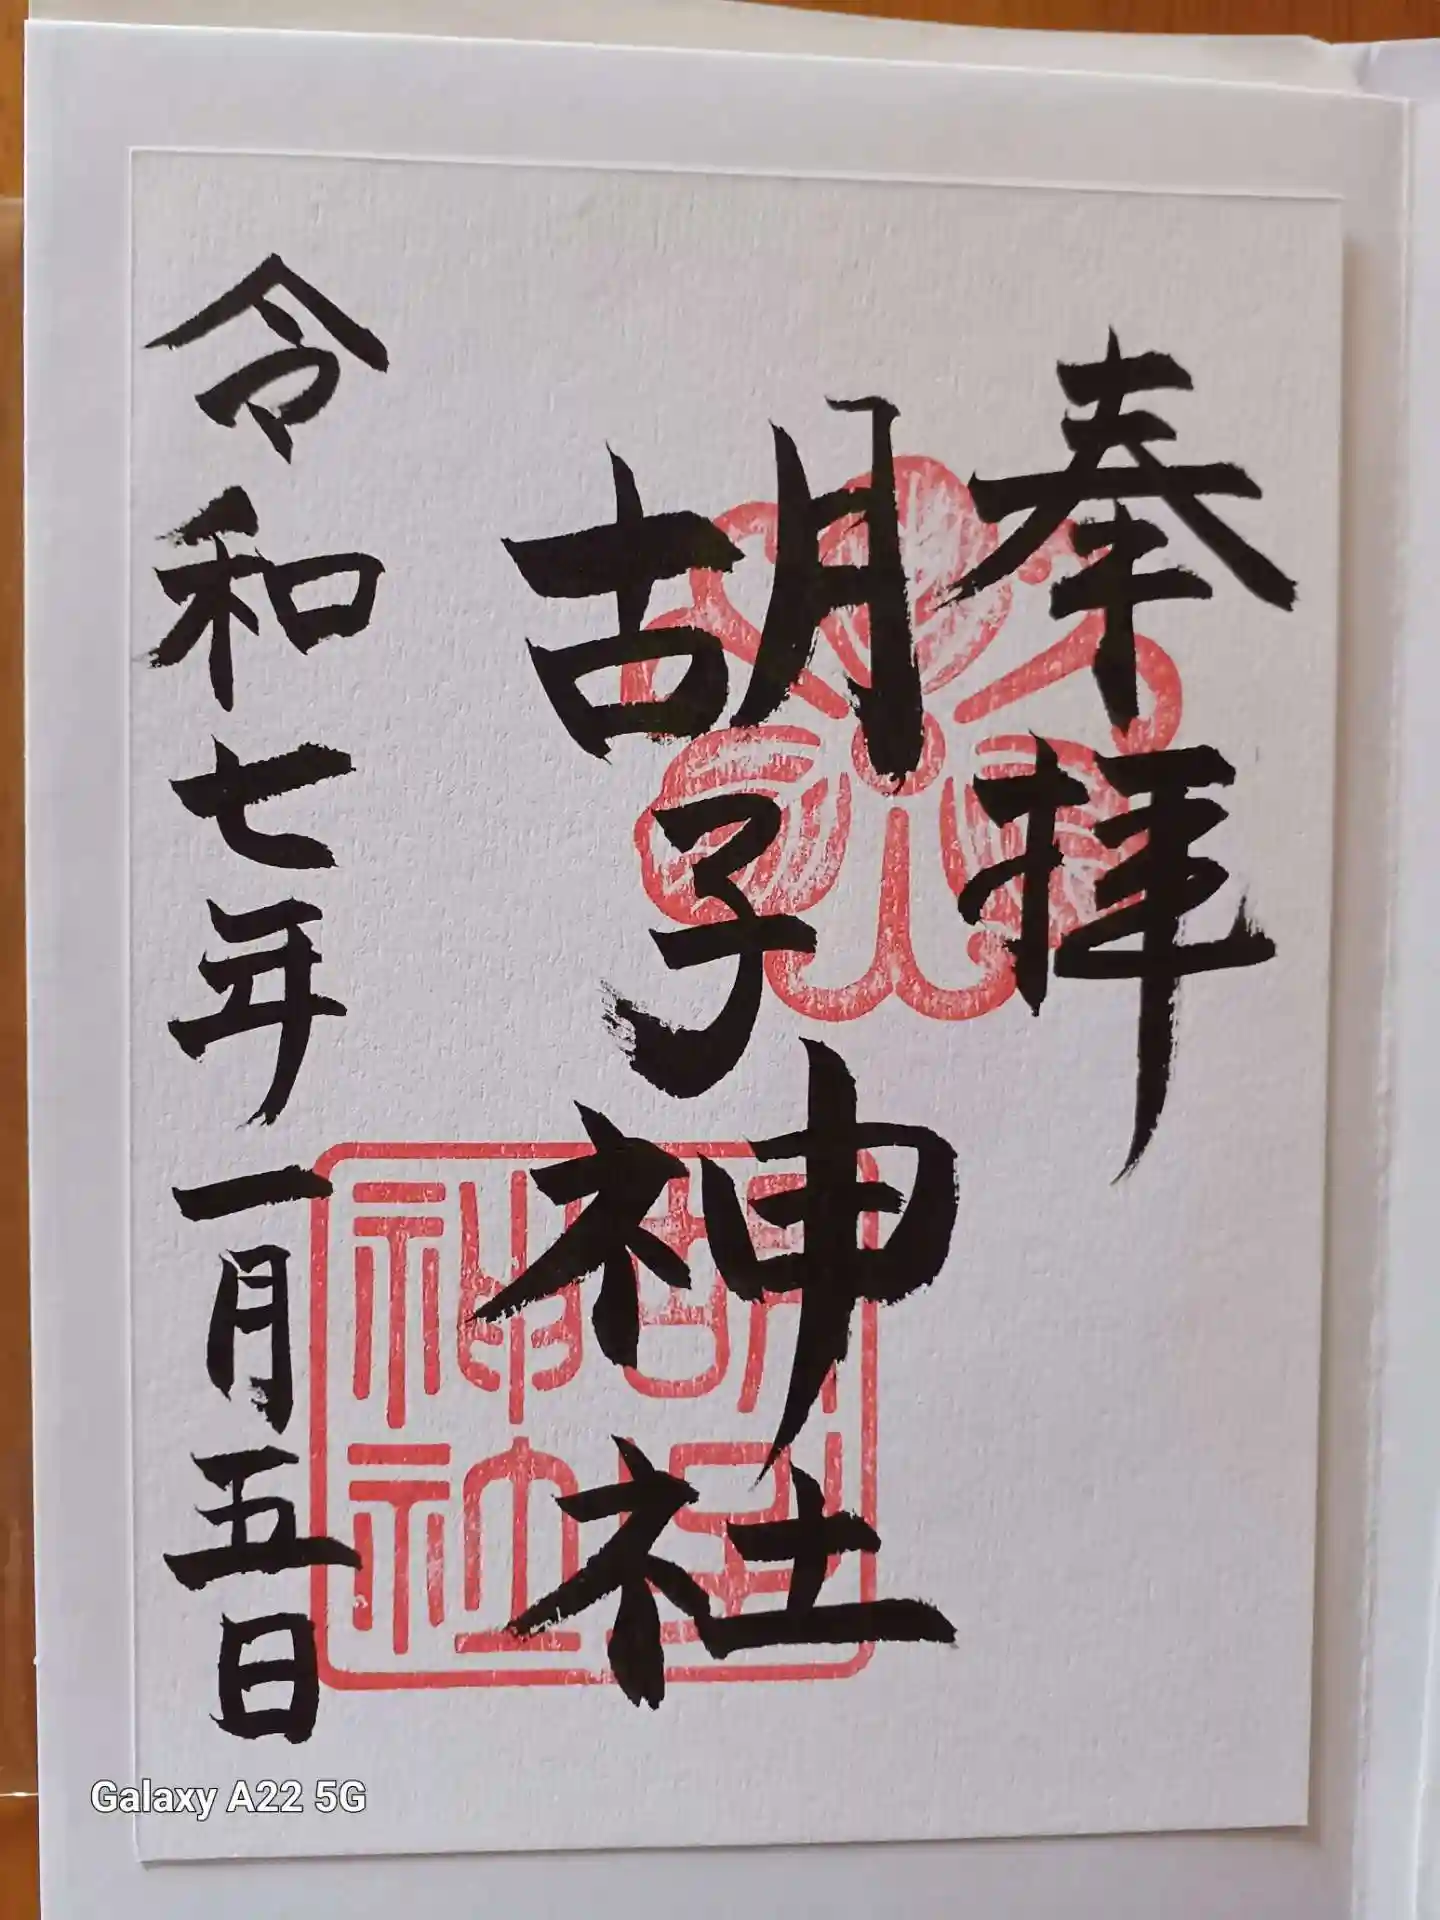 奉拝
胡子神社
令和七年一月五日
胡子
神社
Galaxy A22 5G